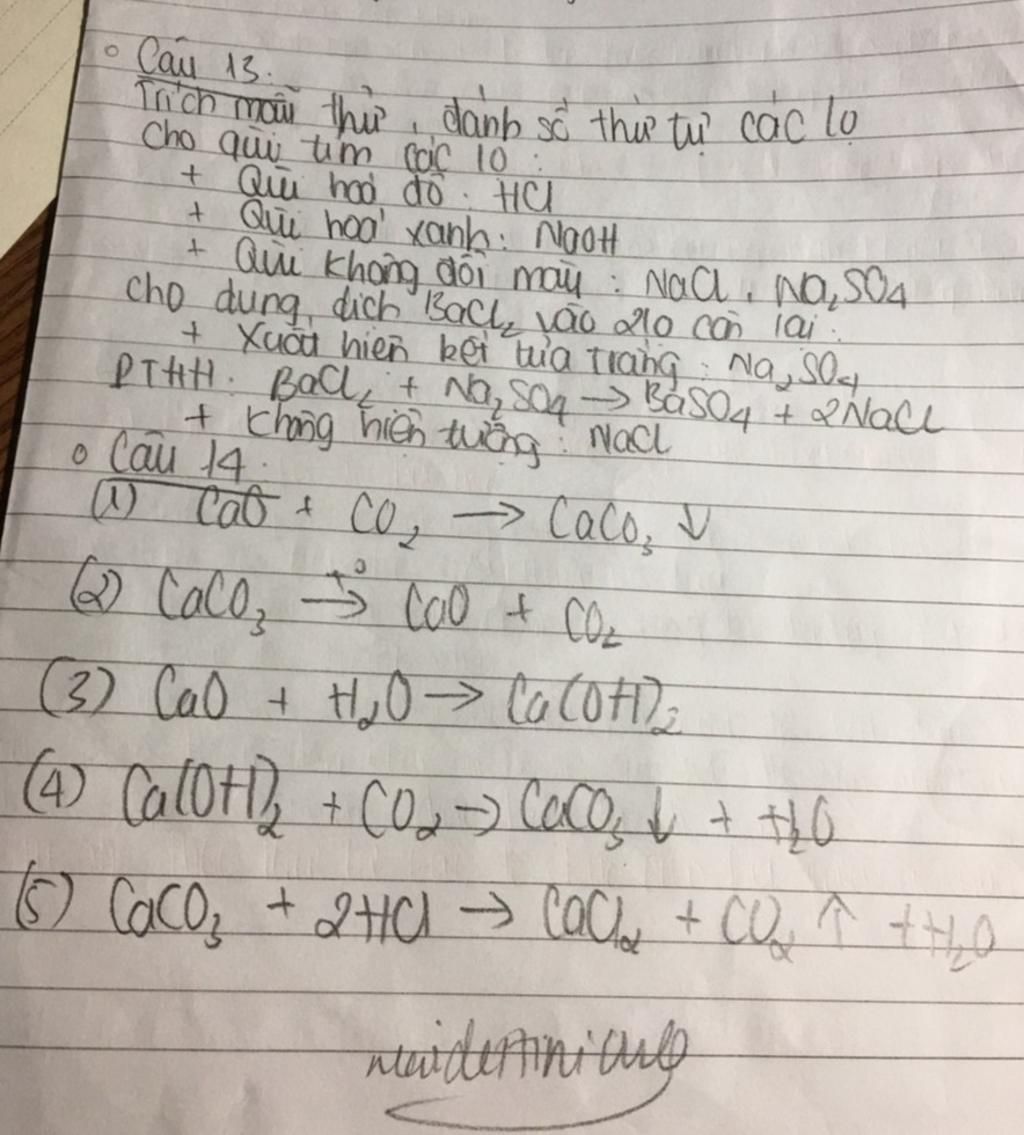 Câu 13.
Trích mẫu thử, đánh số thứ tự các lọ
Cho quỳ tím các lọ:
+ Quỳ hoá đỏ: HCl
+ Quỳ hoá xanh: NaOH
+ Quỳ không đổi màu: NaCl, Na₂SO₄
Cho dung dịch BaCl₂ vào 2 lọ còn lại:
+ Xuất hiện kết tủa trắng: Na₂SO₄
PTHH: BaCl₂ + Na₂SO₄ → BaSO₄ + 2NaCl
+ Không hiện tượng: NaCl
Câu 14.
(1) CaO + CO₂ → CaCO₃ ↓
(2) CaCO₃ →t° CaO + CO₂
(3) CaO + H₂O → Ca(OH)₂
(4) Ca(OH)₂ + CO₂ → CaCO₃ ↓ + H₂O
(5) CaCO₃ + 2HCl → CaCl₂ + CO₂ ↑ + H₂O